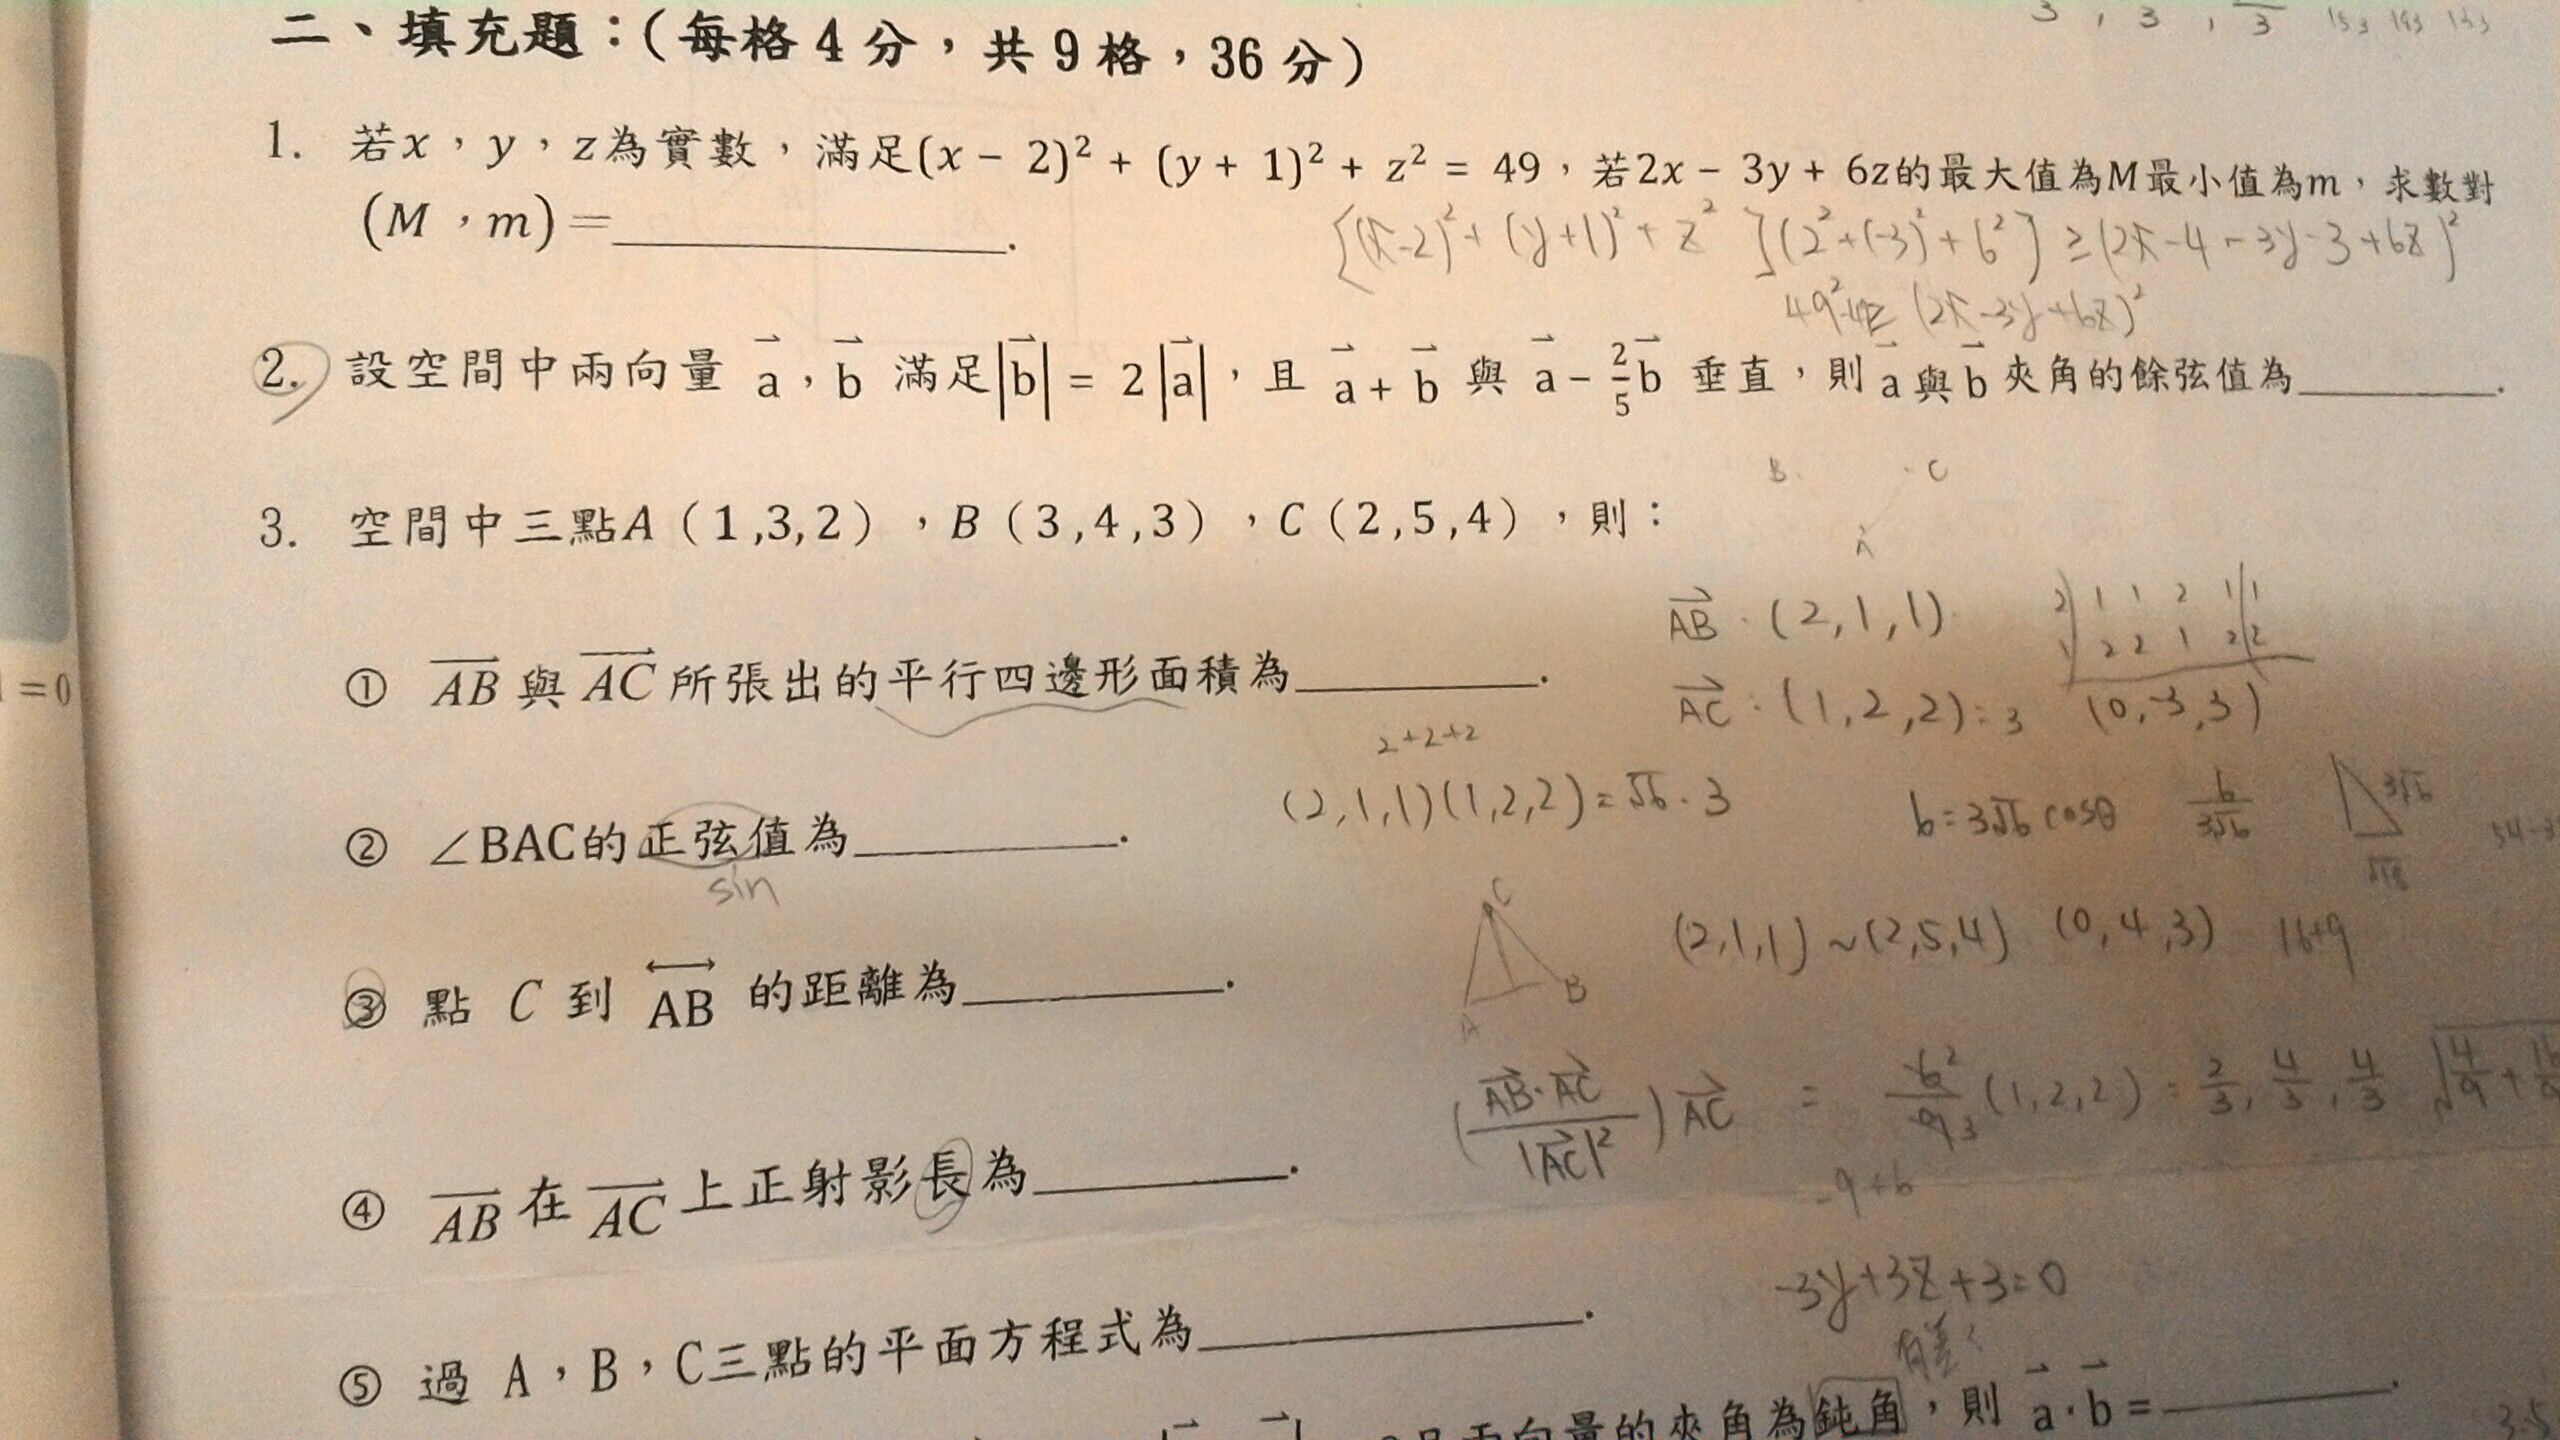 二、填充題：(每格4分，共9格，36分)
1. 若x，y，z為實數，滿足(x − 2)² + (y + 1)² + z² = 49，若2x − 3y + 6z的最大值為M最小值為m，求數對
(M，m)=________.
[(x-2)²+(y+1)²+z²](2²+(-3)²+6²) ≥ (2x-4-3y-3+6z)²
(2x-3y+6z)²
2. 設空間中兩向量 a，b 滿足|b| = 2|a|，且 a + b 與 a − 2/5 b 垂直，則a與b夾角的餘弦值為________.
B C
A
3. 空間中三點A（1,3,2），B（3,4,3），C（2,5,4），則：
AB：(2,1,1)
2 1 1 2 1 1
1 2 2 1 2 2
① AB 與 AC 所張出的平行四邊形面積為________.
AC：(1,2,2)=3 (0,-3,3)
2+2+2
(2,1,1)(1,2,2)=√6·3 6=3√6 cosθ 6/3√6 3√6
② ∠BAC的正弦值為________.
sin
C
A B
(2,1,1)~(2,5,4) (0,4,3) 16+9
③ 點 C 到 AB 的距離為________.
(AB·AC/|AC|²)AC = 6²/9₃(1,2,2)=2/3, 4/3, 4/3
-9+6
④ AB 在 AC 上正射影長為________.
-3y+3z+3=0
有差
⑤ 過 A，B，C三點的平面方程式為________.
兩向量的夾角為鈍角，則 a·b=________.
=0